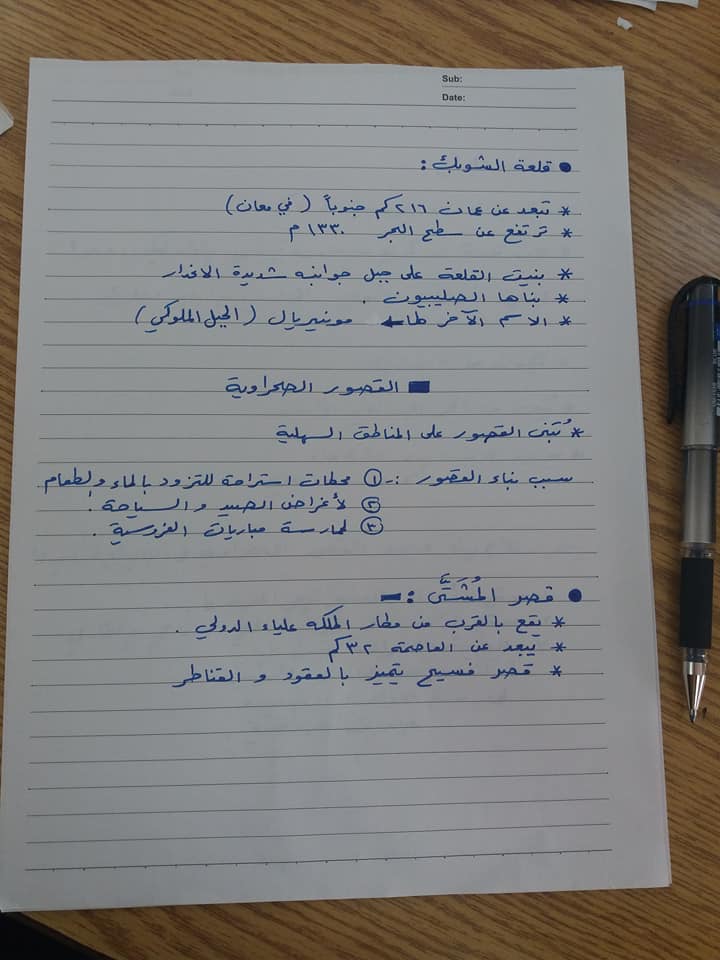 Sub:
Date:
● قلعة الشوبك :
* تبعد عن عمان ٢١٦ كم جنوباً (في معان)
* ترتفع عن سطح البحر ١٣٣٠ م
* بنيت القلعة على جبل جوانبه شديدة الانحدار
* بناها الصليبيون .
* الاسم الآخر لها ← مونتيريال (الجبل الملوكي)
■ القصور الصحراوية
* تُبنى القصور على المناطق السهلية
سبب بناء القصور :- ① محطات استراحة للتزود بالماء والطعام
② لأغراض الصيد و السياحة .
③ لممارسة مباريات الفروسية .
● قصر المُشَتَّى :-
* يقع بالقرب من مطار الملكه علياء الدولي .
* يبعد عن العاصمة ٣٢ كم
* قصر فسيح يتميز بالعقود و القناطر